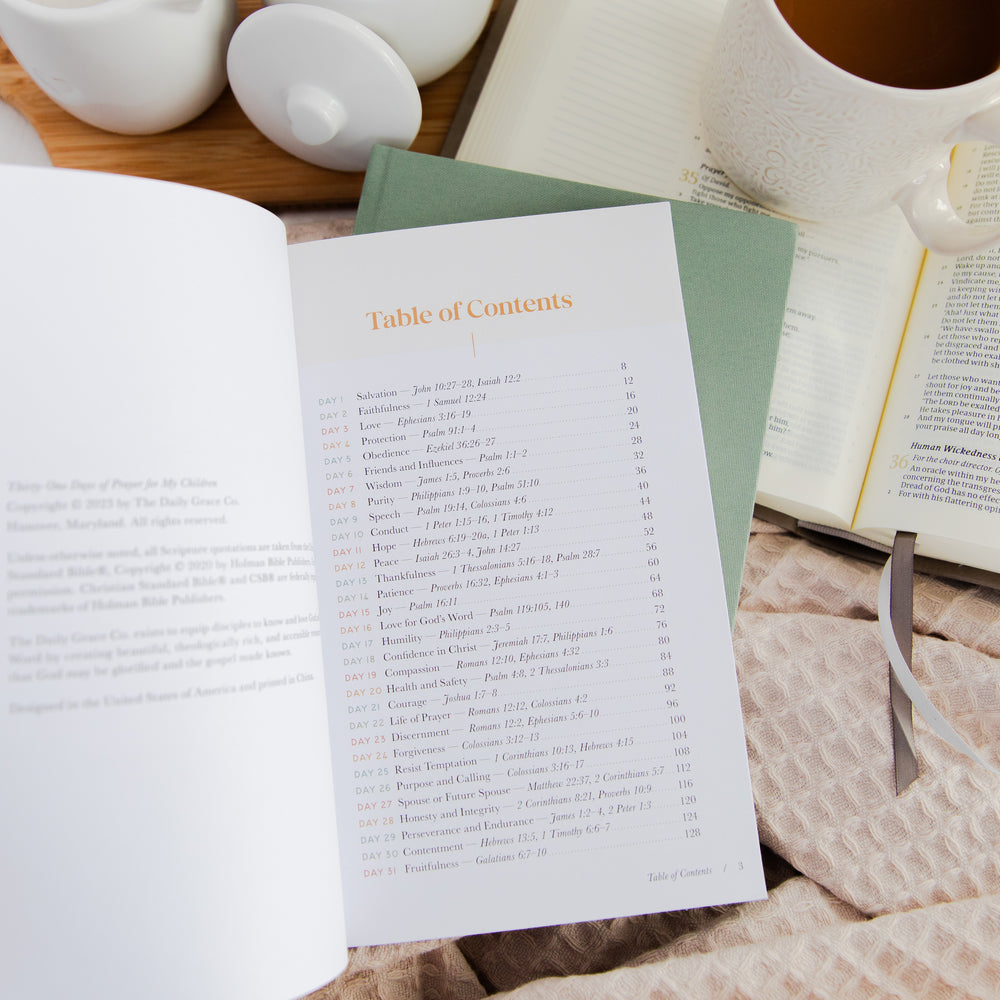 Thirty-One Days of Prayer for My Children
Copyright © 2023 by The Daily Grace Co.
Hanover, Maryland. All rights reserved.
Unless otherwise noted, all Scripture quotations are taken from the
Standard Bible®, Copyright © 2020 by Holman Bible Publishers
permission. Christian Standard Bible® and CSB® are federally
trademarks of Holman Bible Publishers.
The Daily Grace Co. exists to equip disciples to know and love
Word by creating beautiful, theologically rich, and accessible
that God may be glorified and the gospel made known.
Designed in the United States of America and printed in China
Table of Contents
DAY 1 Salvation — John 10:27–28, Isaiah 12:2 8
DAY 2 Faithfulness — 1 Samuel 12:24 12
DAY 3 Love — Ephesians 3:16–19 16
DAY 4 Protection — Psalm 91:1–4 20
DAY 5 Obedience — Ezekiel 36:26–27 24
DAY 6 Friends and Influences — Psalm 1:1–2 28
DAY 7 Wisdom — James 1:5, Proverbs 2:6 32
DAY 8 Purity — Philippians 1:9–10, Psalm 51:10 36
DAY 9 Speech — Psalm 19:14, Colossians 4:6 40
DAY 10 Conduct — 1 Peter 1:15–16, 1 Timothy 4:12 44
DAY 11 Hope — Hebrews 6:19–20a, 1 Peter 1:13 48
DAY 12 Peace — Isaiah 26:3–4, John 14:27 52
DAY 13 Thankfulness — 1 Thessalonians 5:16–18, Psalm 28:7 56
DAY 14 Patience — Proverbs 16:32, Ephesians 4:1–3 60
DAY 15 Joy — Psalm 16:11 64
DAY 16 Love for God's Word — Psalm 119:105, 140 68
DAY 17 Humility — Philippians 2:3–5 72
DAY 18 Confidence in Christ — Jeremiah 17:7, Philippians 1:6 76
DAY 19 Compassion — Romans 12:10, Ephesians 4:32 80
DAY 20 Health and Safety — Psalm 4:8, 2 Thessalonians 3:3 84
DAY 21 Courage — Joshua 1:7–8 88
DAY 22 Life of Prayer — Romans 12:12, Colossians 4:2 92
DAY 23 Discernment — Romans 12:2, Ephesians 5:6–10 96
DAY 24 Forgiveness — Colossians 3:12–13 100
DAY 25 Resist Temptation — 1 Corinthians 10:13, Hebrews 4:15 104
DAY 26 Purpose and Calling — Colossians 3:16–17 108
DAY 27 Spouse or Future Spouse — Matthew 22:37, 2 Corinthians 5:7 112
DAY 28 Honesty and Integrity — 2 Corinthians 8:21, Proverbs 10:9 116
DAY 29 Perseverance and Endurance — James 1:2–4, 2 Peter 1:3 120
DAY 30 Contentment — Hebrews 13:5, 1 Timothy 6:6–7 124
DAY 31 Fruitfulness — Galatians 6:7–10 128
Table of Contents / 3
Prayer
35 Of David.
Oppose my
fight those who fight
my pursuers,
em away.
him.
him?"
Lord, do not
Wake up and
to my cause,
24 Vindicate me
in keeping wi
and do not let
25 Do not let them
"Aha! Just what
Do not let them
"We have swallo
26 Let those who
be disgraced and
let those who exa
be clothed with sh
27 Let those who want
shout for joy and be
let them continually
"The LORD be exalted
He takes pleasure in
28 And my tongue will pr
your praise all day long
Human Wickedness
36 For the choir director. O
An oracle within my he
concerning the transgres
Dread of God has no effec
2 For with his flattering opin